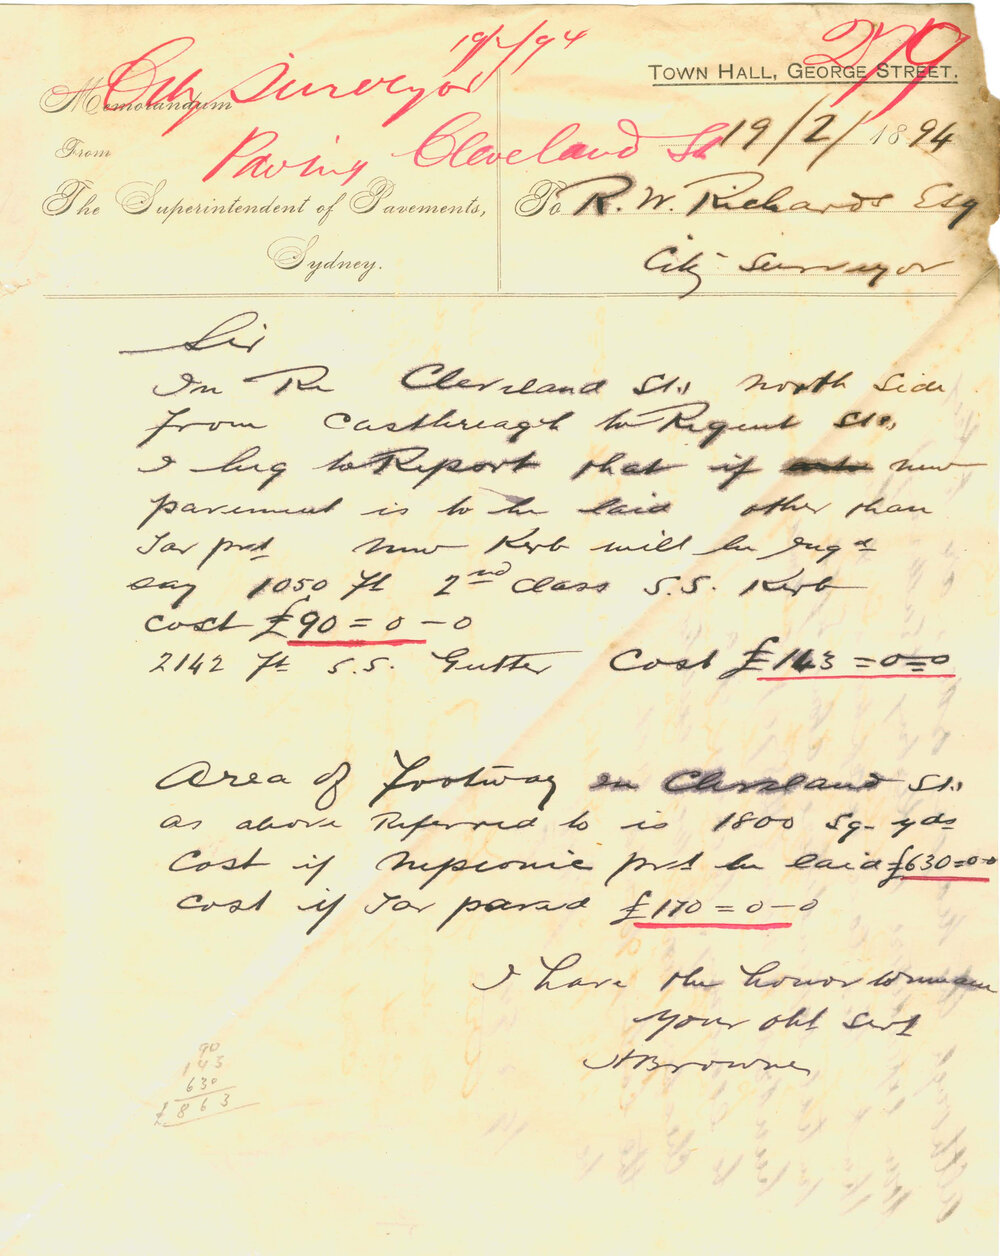 19/2/94
279
City Surveyor
TOWN HALL, GEORGE STREET.
Memorandum
Paving Cleveland St
19/2/ 1894
From
The Superintendent of Pavements,
To R. W. Richards Esq
Sydney.
City Surveyor
Sir
In Re Cleveland St., north side
from Castlereagh to Regent Sts.
I beg to Report that if new
pavement is to be laid other than
Tar pvd new Kerb will be reqd
say 1050 ft 2nd class S.S. Kerb
cost £90=0-0
2142 ft S.S. Gutter Cost £143=0=0
Area of Footway in Cleveland St.,
as above Referred to is 1800 Sq. yds
Cost if pvd be laid £630=0-0
Cost if Tar paved £170=0-0
I have the honor to remain
Your obt Servt
Browne
90
143
630
£863